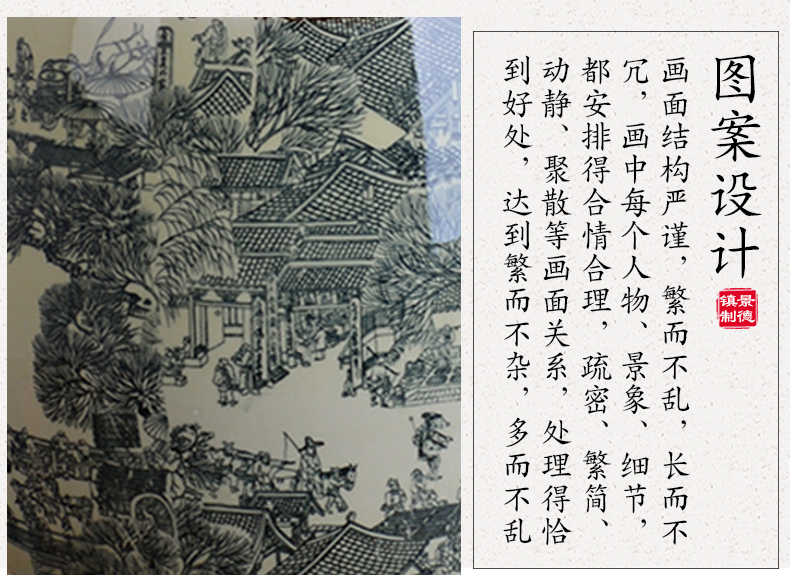 图案设计
景德镇制
画面结构严谨，繁而不乱，长而不
冗，画中每个人物、景象、细节，
都安排得合情合理，疏密、繁简、
动静、聚散等画面关系，处理得恰
到好处，达到繁而不杂，多而不乱